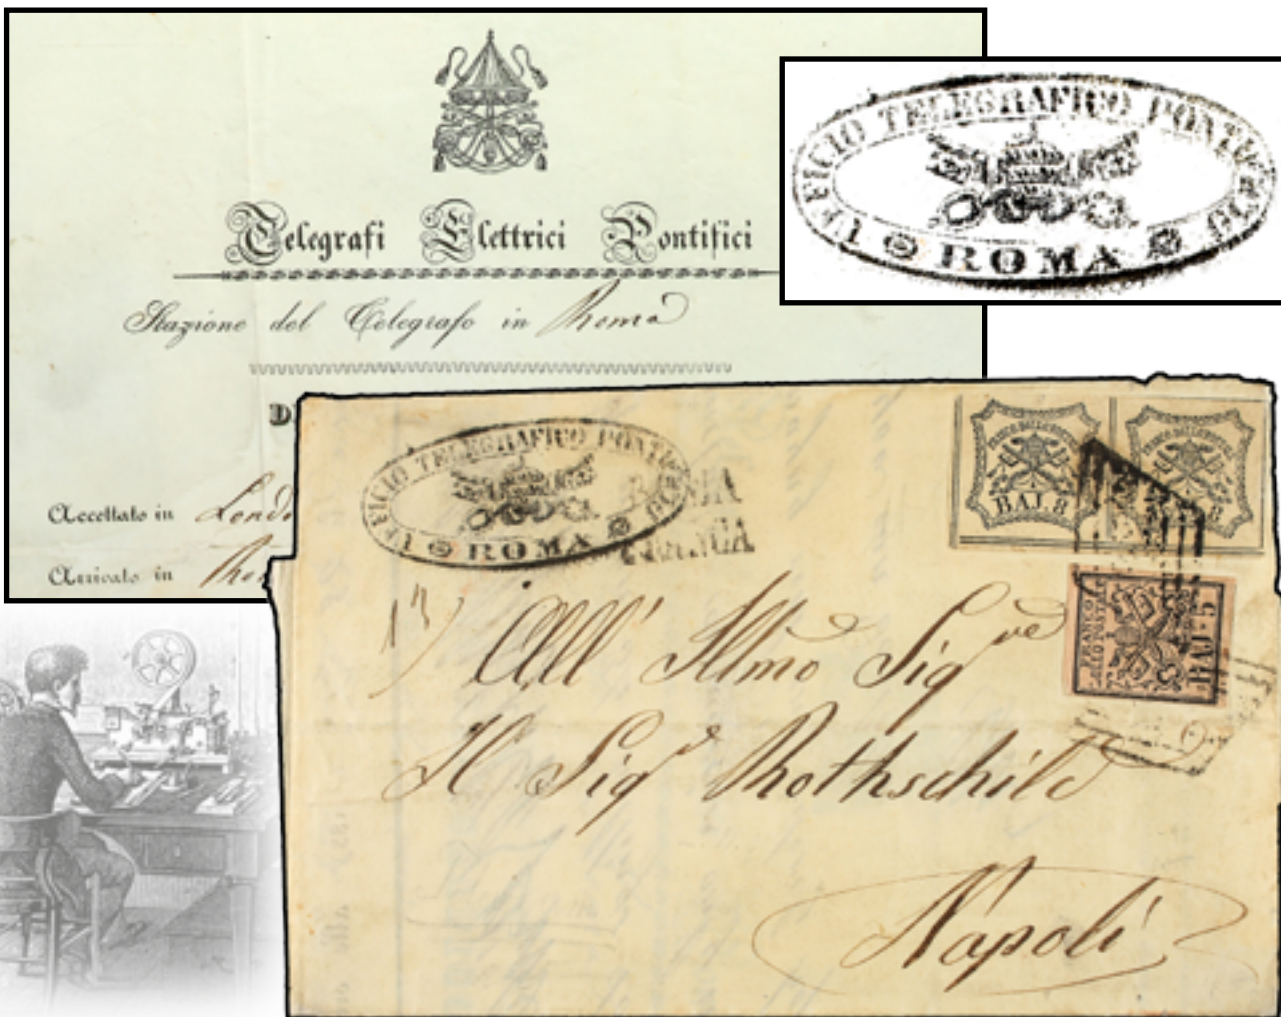 Telegrafi Elettrici Pontifici
Stazione del Telegrafo in Roma
Accettato in
Arrivato in
UFFICIO TELEGRAFICO PONTIFICIO
ROMA
UFFICIO TELEGRAFICO PONTIFICIO
ROMA
ROMA
FRANCA
BAJ. 8
8
FRANCO
BOLLO POSTALE
BAJ. 5
13)
All' Illmo Sig^re
Il Sig^r Rothschild
Napoli